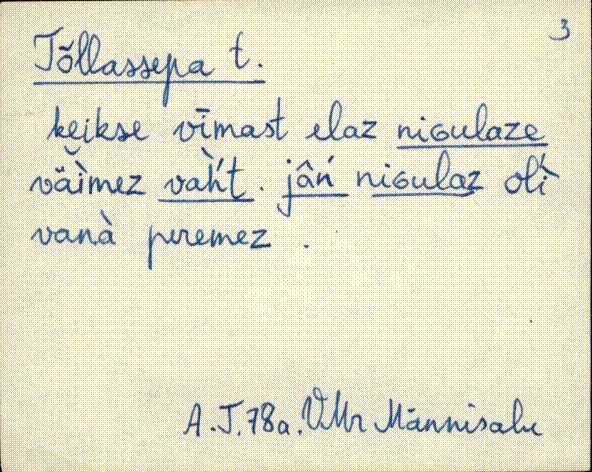 3
Tõllassepa t.
keikse vīmast elaz niɢulaze
väìmez vàh́t. jâń niɢulaz olì
vanà peremez.
A.T.78a. VMr Männisalu